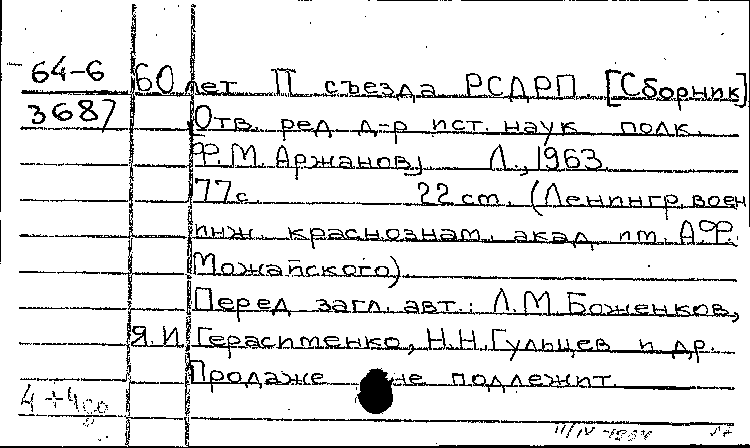 64-6 60 лет II съезда РСДРП. [Сборник]
3687 Отв. ред. д-р ист. наук полк.
Ф.М. Аржанов, Л., 1963.
77 с. 22 см. (Ленингр. воен
инж. краснознам. акад. им. А.Ф.
Можайского).
Перед загл. авт.: Л.М. Боженков,
Я.И. Герасименко, Н.Н. Гульцев и др.
Продаже не подлежит.
4+4